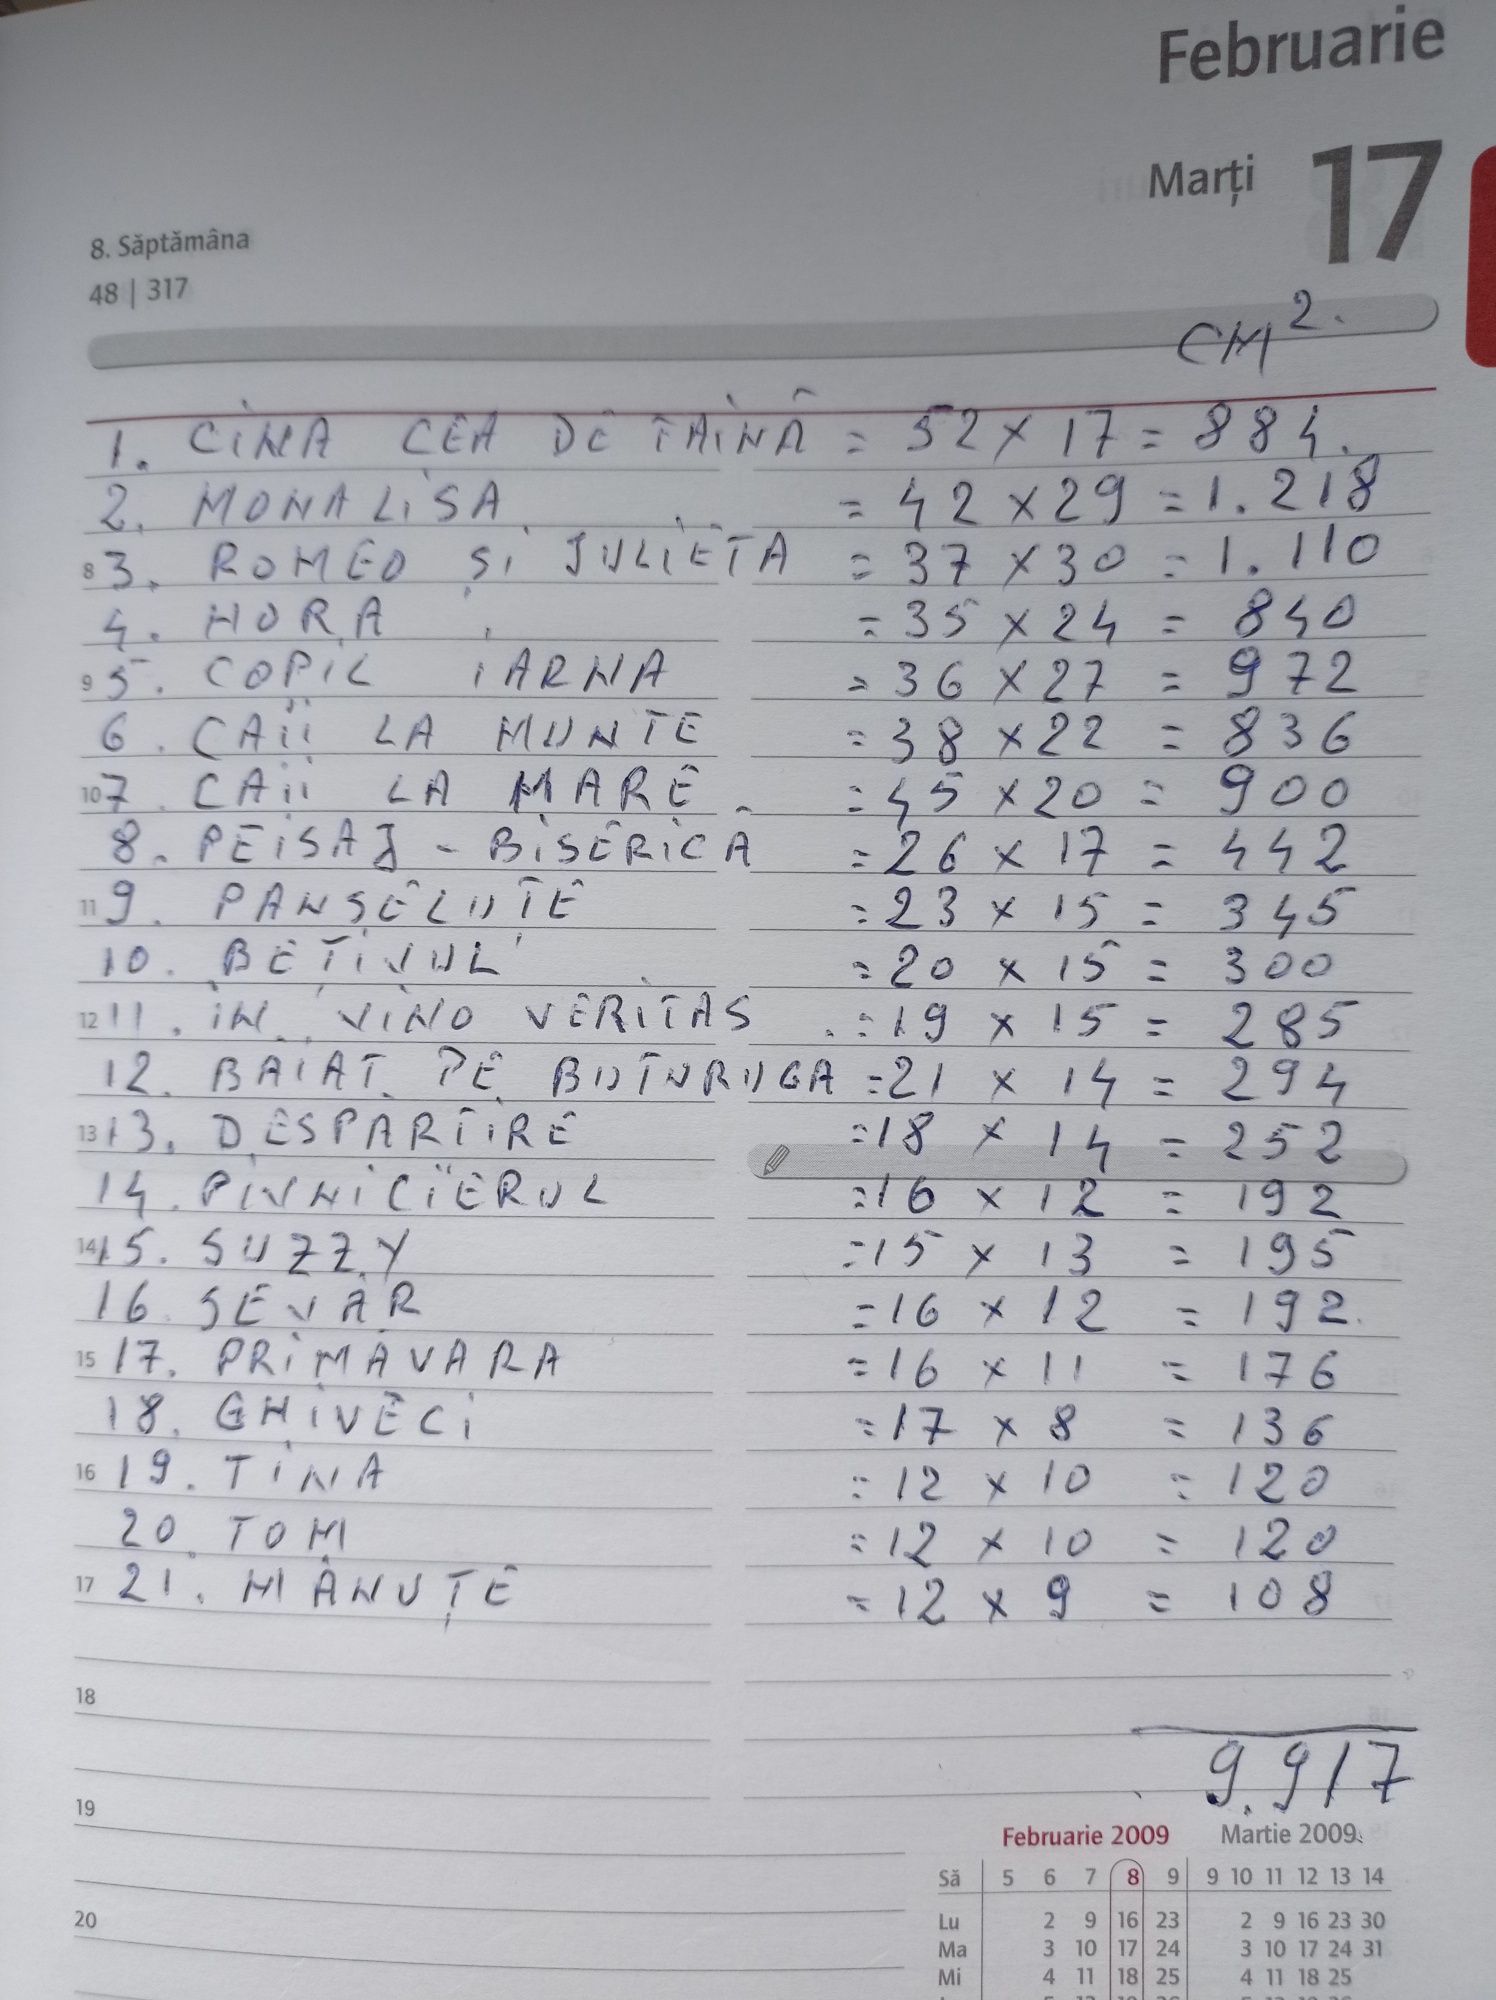 Februarie
Marți 17
8. Săptămâna
48 | 317
CM².
1. CINA CEA DE TAINĂ = 52 x 17 = 884.
2. MONALISA = 42 x 29 = 1.218
8 3. ROMEO ȘI JULIETA = 37 x 30 = 1.110
4. HORA = 35 x 24 = 840
9 5. COPIL IARNA = 36 x 27 = 972
6. CAII LA MUNTE = 38 x 22 = 836
10 7. CAII LA MARE = 45 x 20 = 900
8. PEISAJ - BISERICĂ = 26 x 17 = 442
11 9. PANSELUȚE = 23 x 15 = 345
10. BEȚIVUL = 20 x 15 = 300
12 11. IN VINO VERITAS = 19 x 15 = 285
12. BAIAT PE BUTURUGA = 21 x 14 = 294
13 13. DESPARTIRE = 18 x 14 = 252
14. PIVNICIERUL = 16 x 12 = 192
14 15. SUZZY = 15 x 13 = 195
16. SEVAR = 16 x 12 = 192.
15 17. PRIMAVARA = 16 x 11 = 176
18. GHIVECI = 17 x 8 = 136
16 19. TINA = 12 x 10 = 120
20. TOM = 12 x 10 = 120
17 21. MÂNUȚE = 12 x 9 = 108
18
9.917
19
Februarie 2009 Martie 2009
Să 5 6 7 8 9 9 10 11 12 13 14
20
Lu 2 9 16 23 2 9 16 23 30
Ma 3 10 17 24 3 10 17 24 31
Mi 4 11 18 25 4 11 18 25